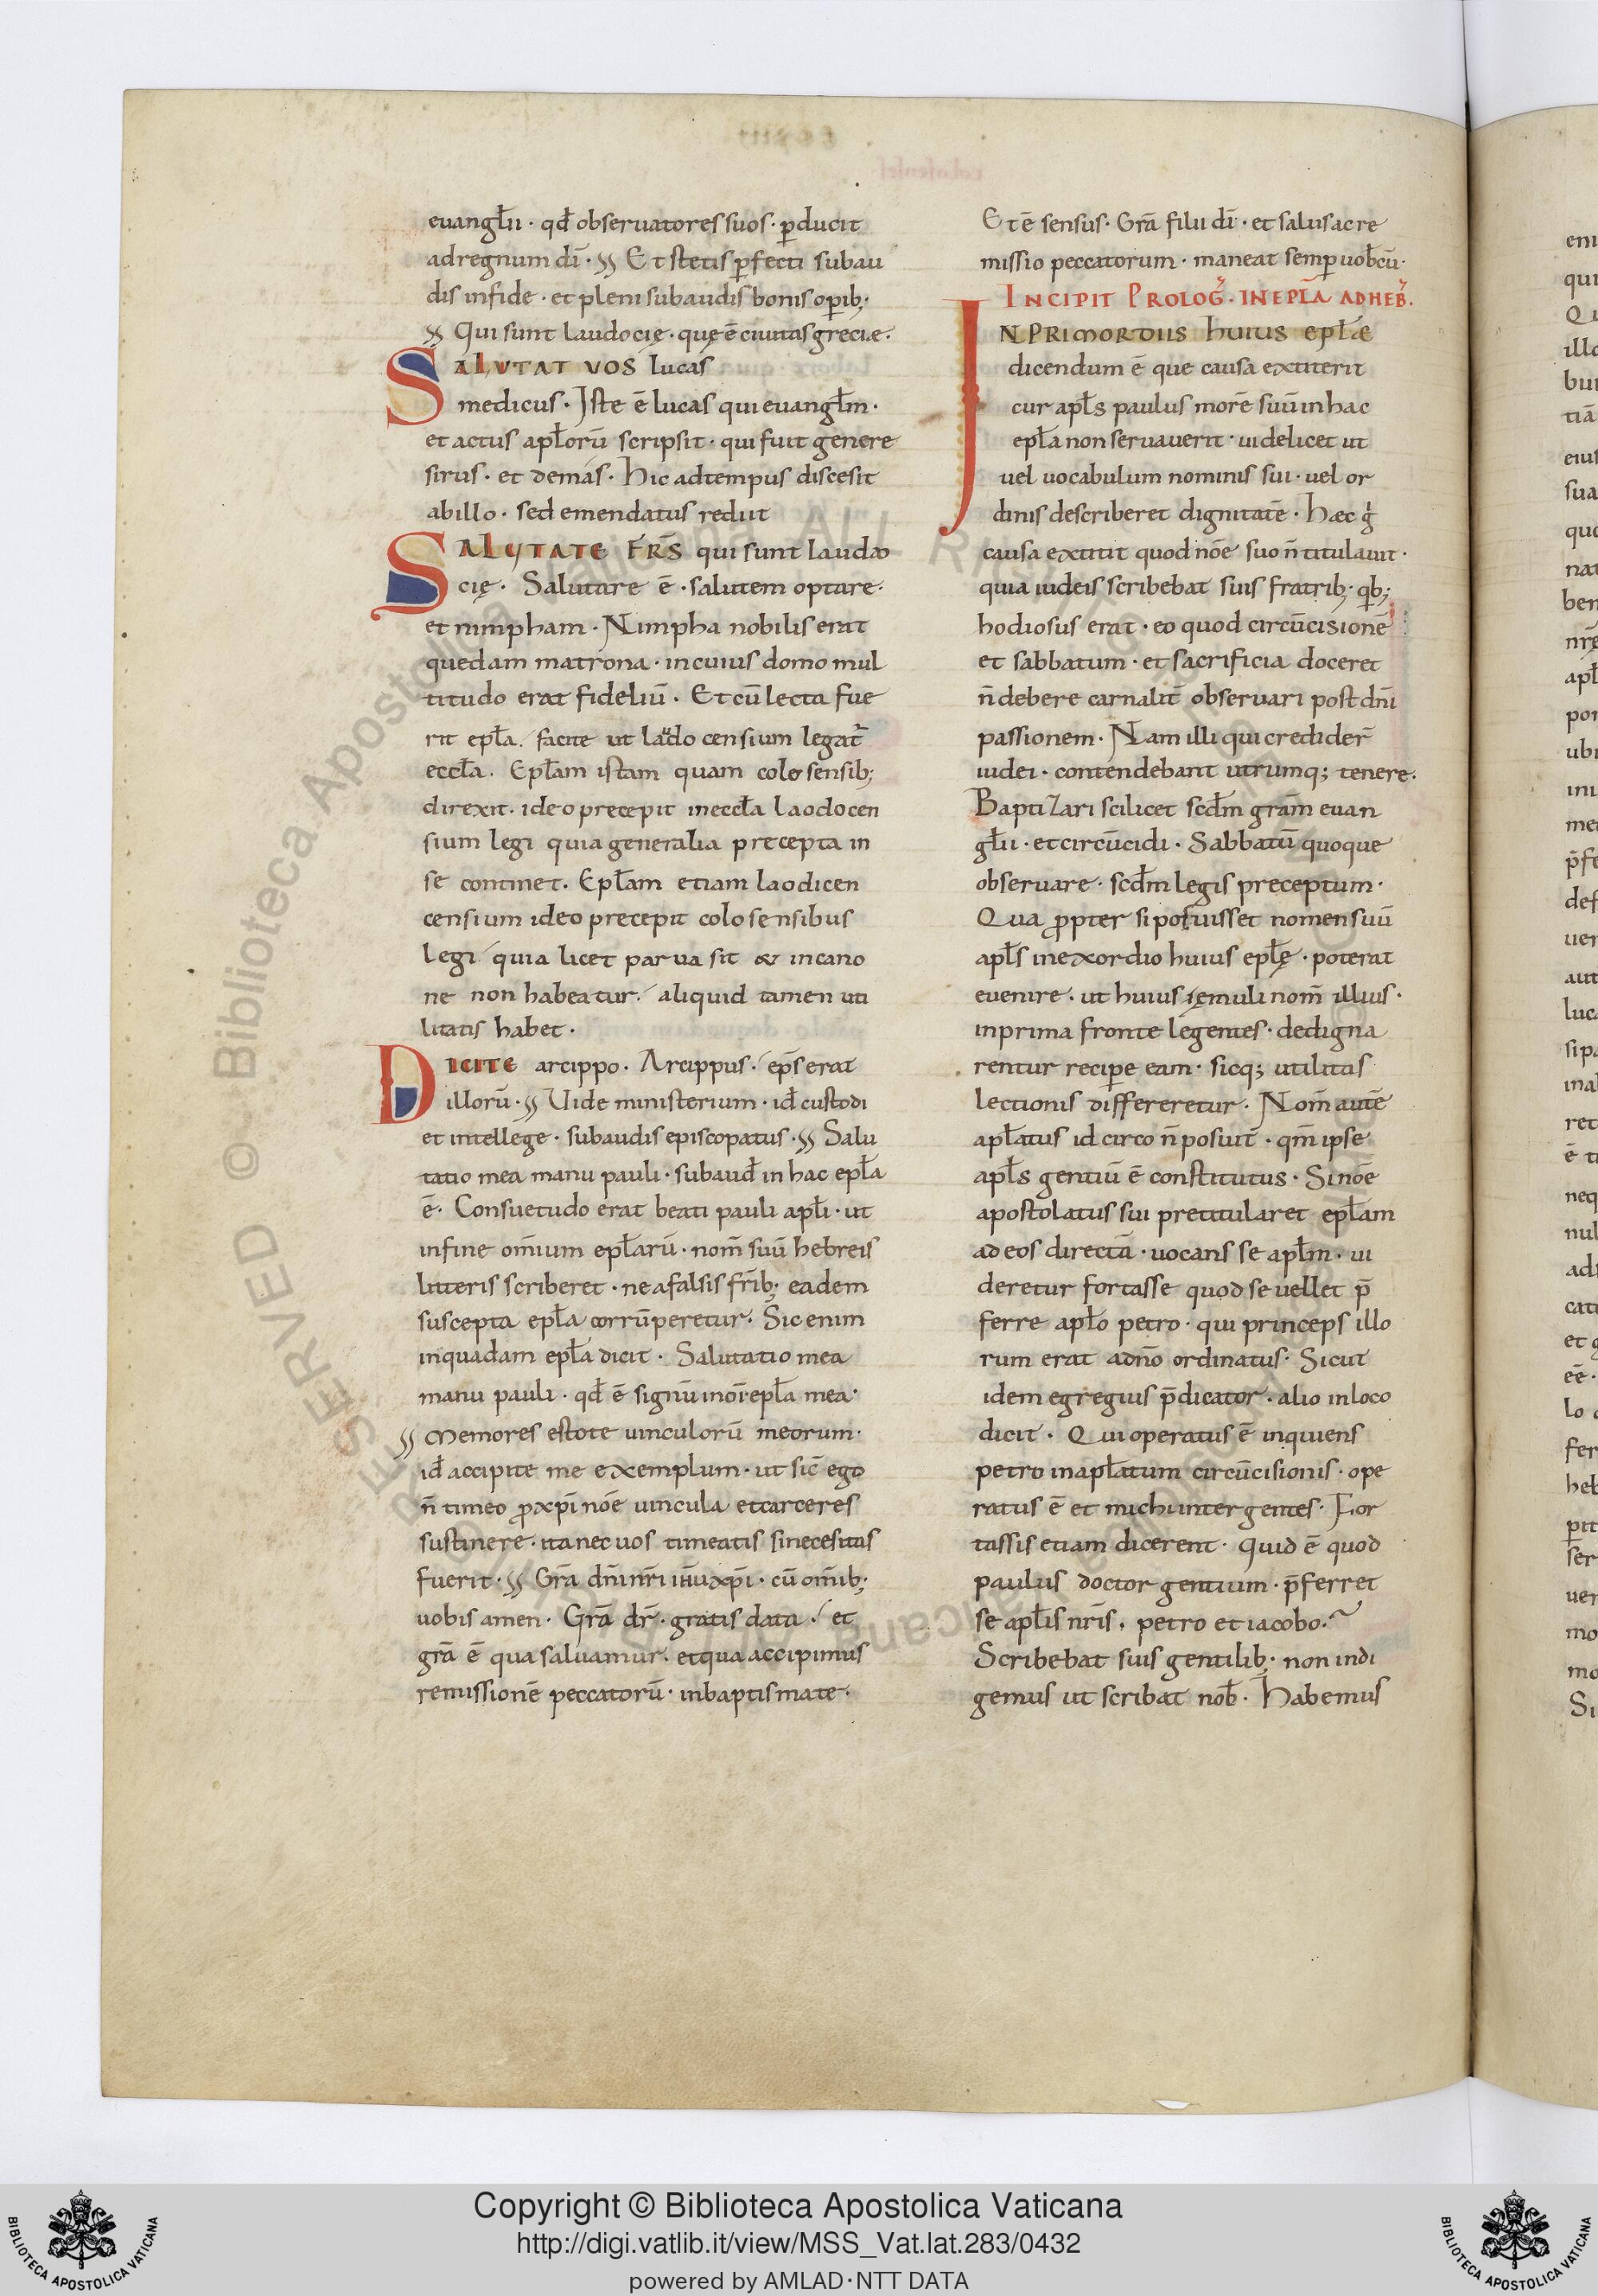 euangl̄ii · qđ obseruatores suos · p̲ducit
ad regnum dī · §§ Et stetis p̲fecti subau
dis infide · et pleni subaudis bonis op̲ib;
§§ Qui sunt laudocię · quę ē ciuitas greciæ ·
SALUTAT VOS lucas
medicus · Iste ē lucas qui euangl̄m ·
et actus apl̄orū scripsit · qui fuit genere
sirus · et demás · hic adtempus discesit
abillo · sed emendatus rediit
SALUTATE FR̄S qui sunt laudo
cię · Salutare ē · salutem optare ·
et nimpham · Nimpha nobilis erat
quedam matrona · incuius domo mul
titudo erat fideliū · Et cū lecta fue
rit epl̄a . facite ut laudocensium legat̄
eccl̄a . Epl̄am istam quam colosensib;
direxit · ideo precepit ineccl̄a laodocen
sium legi quia generalia precepta in
se continet . Epl̄am etiam laodicen
censium ideo precepit colosensibus
legi quia licet parua sit & incano
ne non habeatur . aliquid tamen uti
litatis habet ·
DICITE arcippo . Arcippus . ep̄s erat
illorū · §§ Uide ministerium · iđ custodi
et intellege · subaudis episcopatus · §§ Salu
tatio mea manu pauli · subauđ in hac epl̄a
ē · Consuetudo erat beati pauli apl̄i · ut
infine om̄ium epl̄arū · nom̄ suū hebreis
litteris scriberet · ne afalsis fr̄ib; eadem
suscepta epl̄a corrūperetur . Sic enim
inquadam epl̄a dicit · Salutatio mea
manu pauli · qđ ē signū inom̄i epl̄a mea ·
§§ Memores estote uinculorū meorum ·
iđ accipite me exemplum · ut sic̄ ego
n̄ timeo p̱ xp̄i nōe uincula etcarceres
sustinere · ita nec uos timeatis sinecesitas
fuerit · §§ Gr̄a dn̄i nr̄i ih̄u xp̄i · cū om̄ib;
uobis amen · Gr̄a dr̄ · gratis data . et
gr̄a ē qua saluamur · etqua accipimus
remissionē peccatorū · inbaptismate ·
Et ē sensus · Gr̄a filii dī · et salus ac re
missio peccatorum · maneat semp̲ uob̄cū ·
INCIPIT PROLOG̓ · IN EPL̄A AD HEB̓.
IN PRIMORDIIS huius epl̄æ
dicendum ē que causa extiterit
cur apl̄s paulus morē suū in hac
epl̄a non seruauerit · uidelicet ut
uel uocabulum nominis sui · uel or
dinis describeret dignitatē · Hæc ḡ
causa extitit quod nōe suo n̄ titulauit ·
quia iudeis scribebat suis fratrib; qb;
hodiosus erat · eo quod circūcisionē
et sabbatum · et sacrificia doceret
n̄ debere carnalit̄ obseruari post dn̄i
passionem · Nam illi qui credider̄
iudei · contendebant utrumq; tenere ·
Baptizari scilicet scđm grām euan
gl̄ii · et circūcidi · Sabbatū quoque
obseruare · scđm legis preceptum ·
Qua p̱pter si potuisset nomen suū
apl̄s inexordio huius epl̄ę · poterat
euenire · ut huius ięmuli nom̄ illius ·
inprima fronte legentes · dedigna
rentur recip̲e eam · sicq; utilitas
lectionis differeretur · Nom̄ autē
apl̄atus id circo n̄ posuit̄ · qm̄ ipse
apl̄s gentiū ē constitutus · Si nōe
apostolatus sui pretitularet epl̄am
ad eos directā · uocans se apl̄m · ui
deretur fortasse quod se uellet p̄
ferre apl̄o petro · qui princeps illo
rum erat adnō ordinatus · Sicut
idem egregius p̄dicator · alio in loco
dicit · Qui operatus ē inquiens
petro inapl̄atum circūcisionis · ope
ratus ē et michi inter gentes · For
tassis etiam dicerent · Quid ē quod
paulus doctor gentium · p̄ferret
se apl̄is nr̄is , petro et iacobo .~
Scribebat suis gentilib; · non indi
gemus ut scribat nob̄ · Habemus
Copyright © Biblioteca Apostolica Vaticana
http://digi.vatlib.it/view/MSS_Vat.lat.283/0432
powered by AMLAD·NTT DATA